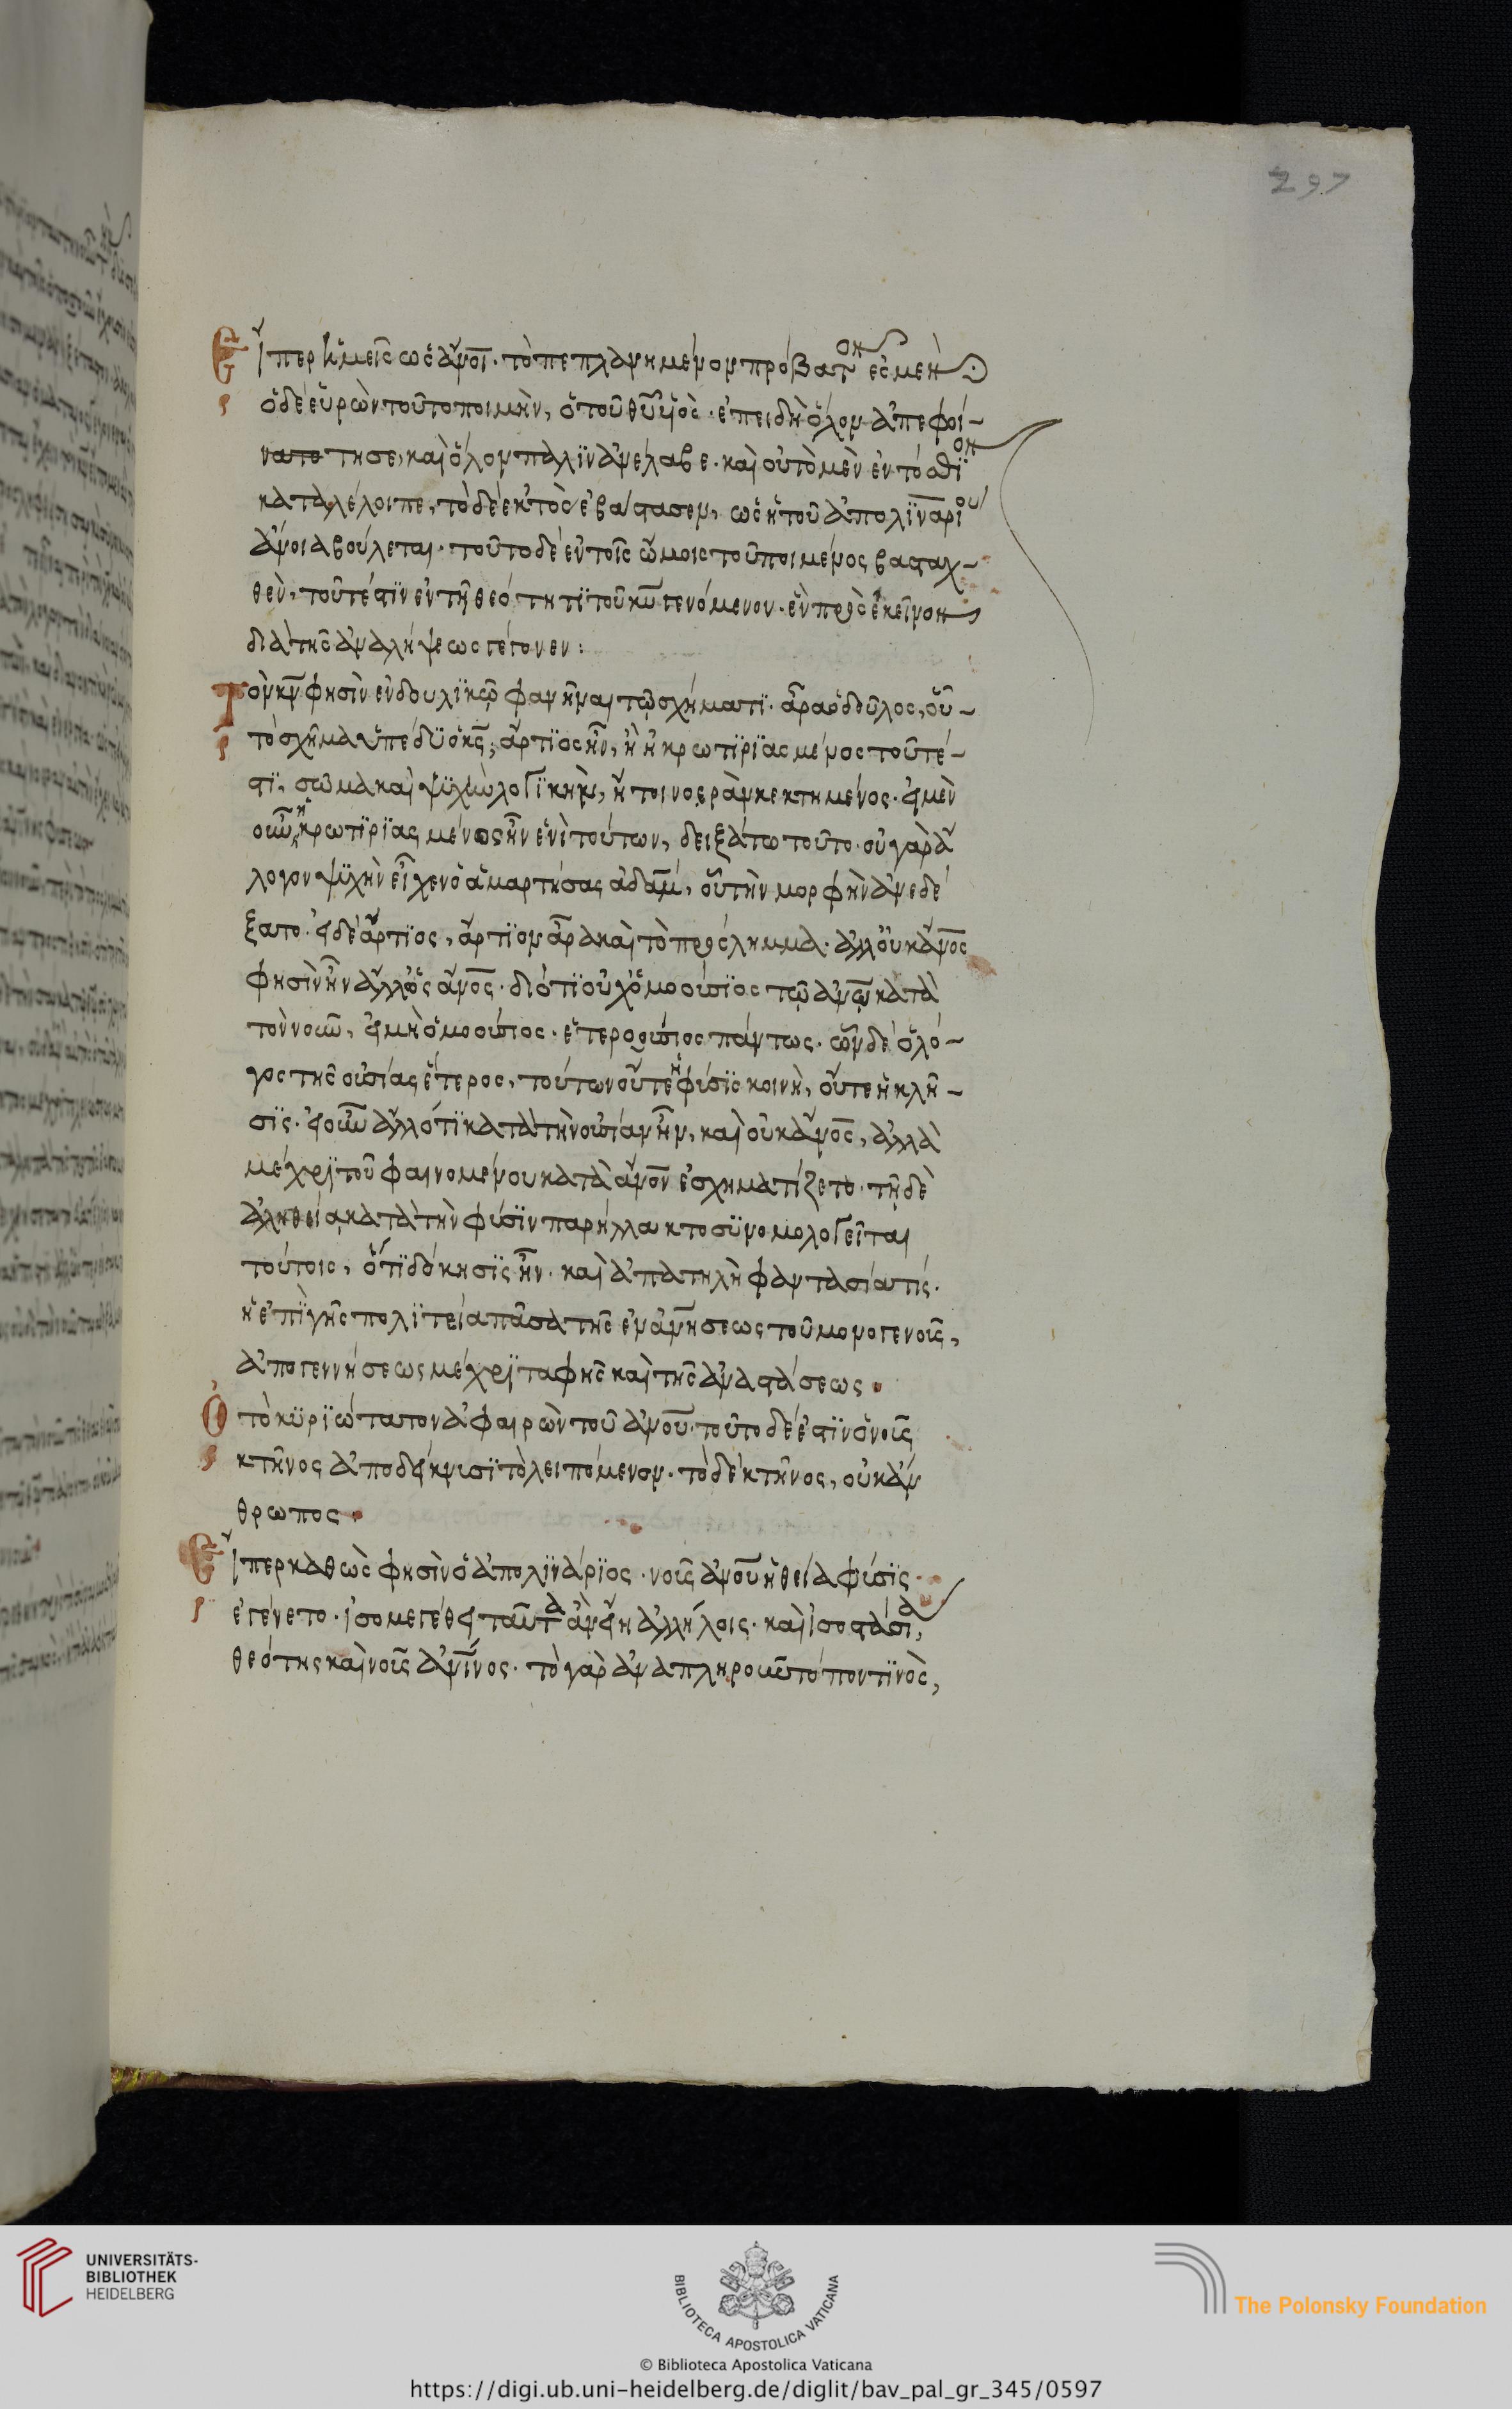 297
Εἴπερ ἡμεῖς ὡς ἄνοι· τὸ πεπλανημένον πρόβατον ἐσμὲν
ὁ δὲ εὑρὼν τοῦτο ποιμὴν, ὁ τοῦ θυ υἱὸς· ἐπειδὴ ὅλον ἀπεφοί-
τησε, καὶ ὅλον πάλϊν ἀνέλαβε· καὶ οὐ τὸ μὲν ἐν τὸ
καταλέλοιπε, τὸ δὲ ἐκτὸς ἐβάστασεν, ὡς ἡ τοῦ ἀπολϊναρίου
ἄνοια βούλεται· τοῦτο δὲ ἐν τοῖς ὤμοις τοῦ ποιμένος βασταχ-
θὲν, τοῦτέστϊν ἐν τῇ θεότητϊ τοῦ κυ γενόμενον· ἓν πρὸς ἐκεῖνον
διὰ τῆς ἀναλήψεως γέγονεν:
Τὸν κν φησὶν ἐν δουλϊκῷ φανῆναι τῷ σχήματϊ· ἆρα ὁ δοῦλος, οὗ
τὸ σχῆμα ὑπέδϋ ὁ κς, ἄρτϊος ἦν, ἢ ἠκρωτϊρϊασμένος τοῦτέ-
στϊ, σῶμα καὶ ψϋχὴν λογϊκὴν, ἤτοι νοερὰν κεκτημένος· εἰ μὲν
οὖν ἠκρωτϊρϊασμένος ἦν ἑνὶ τούτων, δειξάτω τοῦτο· οὐ γὰρ ἄ
λογον ψϋχὴν εἶχεν ὁ ἁμαρτήσας ἀδάμ, οὗ τὴν μορφὴν ἀνεδέ
ξατο· εἰ δὲ ἄρτϊος, ἄρτϊον ἄρα καὶ τὸ πρόσλημμα· ἀλλ' οὐκ ἄνος
φησὶν ἦν ἀλλ' ὡς ἄνος· διότϊ οὐχ ὁμοούσϊος τῷ ἀνω κατὰ
τὸν νοῦν, εἰ μὴ ὁμοούσιος· ἑτεροούσιος πάντως· ὧν δὲ ὁ λό-
γος τῆς οὐσίας ἕτερος, τούτων οὔτε ἡ φύσϊς κοινὴ, οὔτε ἡ κλῆ-
σϊς· εἰ οὖν ἄλλο τϊ κατὰ τὴν οὐσίαν ἦν, καὶ οὐκ ἄνος, ἀλλὰ
μέχρϊ τοῦ φαινομένου κατὰ ἄνον ἐσχηματίζετο· τῇ δὲ
ἀληθείᾳ κατὰ τὴν φύσϊν παρήλλακτο σϋνομολογεῖται
τούτοις, ὅτϊ δόκησϊς ἦν· καὶ ἀπατηλὴ φαντασία τίς·
ἡ ἐπὶ γῆς πολϊτεία πᾶσα τῆς ἐνανήσεως τοῦ μονογενοῦς,
ἀπο γεννήσεως μέχρϊ ταφῆς καὶ τῆς ἀναστάσεως
Ὁ τὸ κϋρϊώτατον ἀφαιρῶν τοῦ ἀνου· τοῦτο δέ ἐστϊν ὁ νοῦς
κτῆνος ἀποδείκνυσϊ τὸ λειπόμενον· τὸ δὲ κτῆνος, οὐκ ἄν
θρωπος
Εἴπερ καθὼς φησὶν ὁ ἀπολϊνάρϊος· νοῦς ἀνου ἡ θεία φύσϊς
ἐγένετο· ἰσομεγέθει ταῦτα ἂν εἴη ἀλλήλοις· καὶ ἰσοστάσια,
θεότης καὶ νοῦς ἀνϊνος· τὸ γὰρ ἀναπληροῦν τόπον τϊνὸς,
UNIVERSITÄTS-
BIBLIOTHEK
HEIDELBERG
BIBLIOTECA APOSTOLICA VATICANA
© Biblioteca Apostolica Vaticana
The Polonsky Foundation
https://digi.ub.uni-heidelberg.de/diglit/bav_pal_gr_345/0597